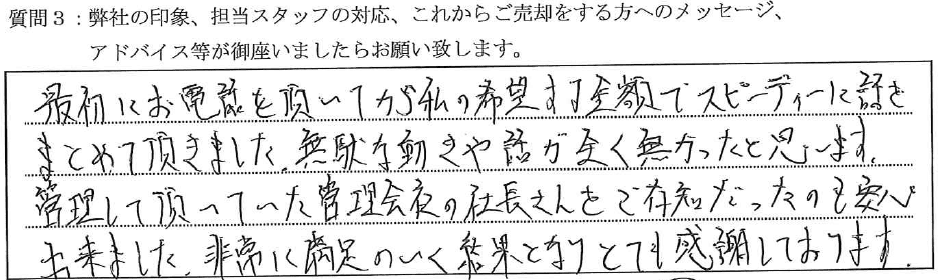 質問３：弊社の印象、担当スタッフの対応、これからご売却をする方へのメッセージ、
アドバイス等が御座いましたらお願い致します。
最初にお電話を頂いてから私の希望する金額でスピーディーに話を
まとめて頂きました。無駄な動きや話が全く無かったと思います。
管理して頂いていた管理会社の社長さんをご存知だったのも安心
出来ました。非常に満足のいく結果となりとても感謝しております。